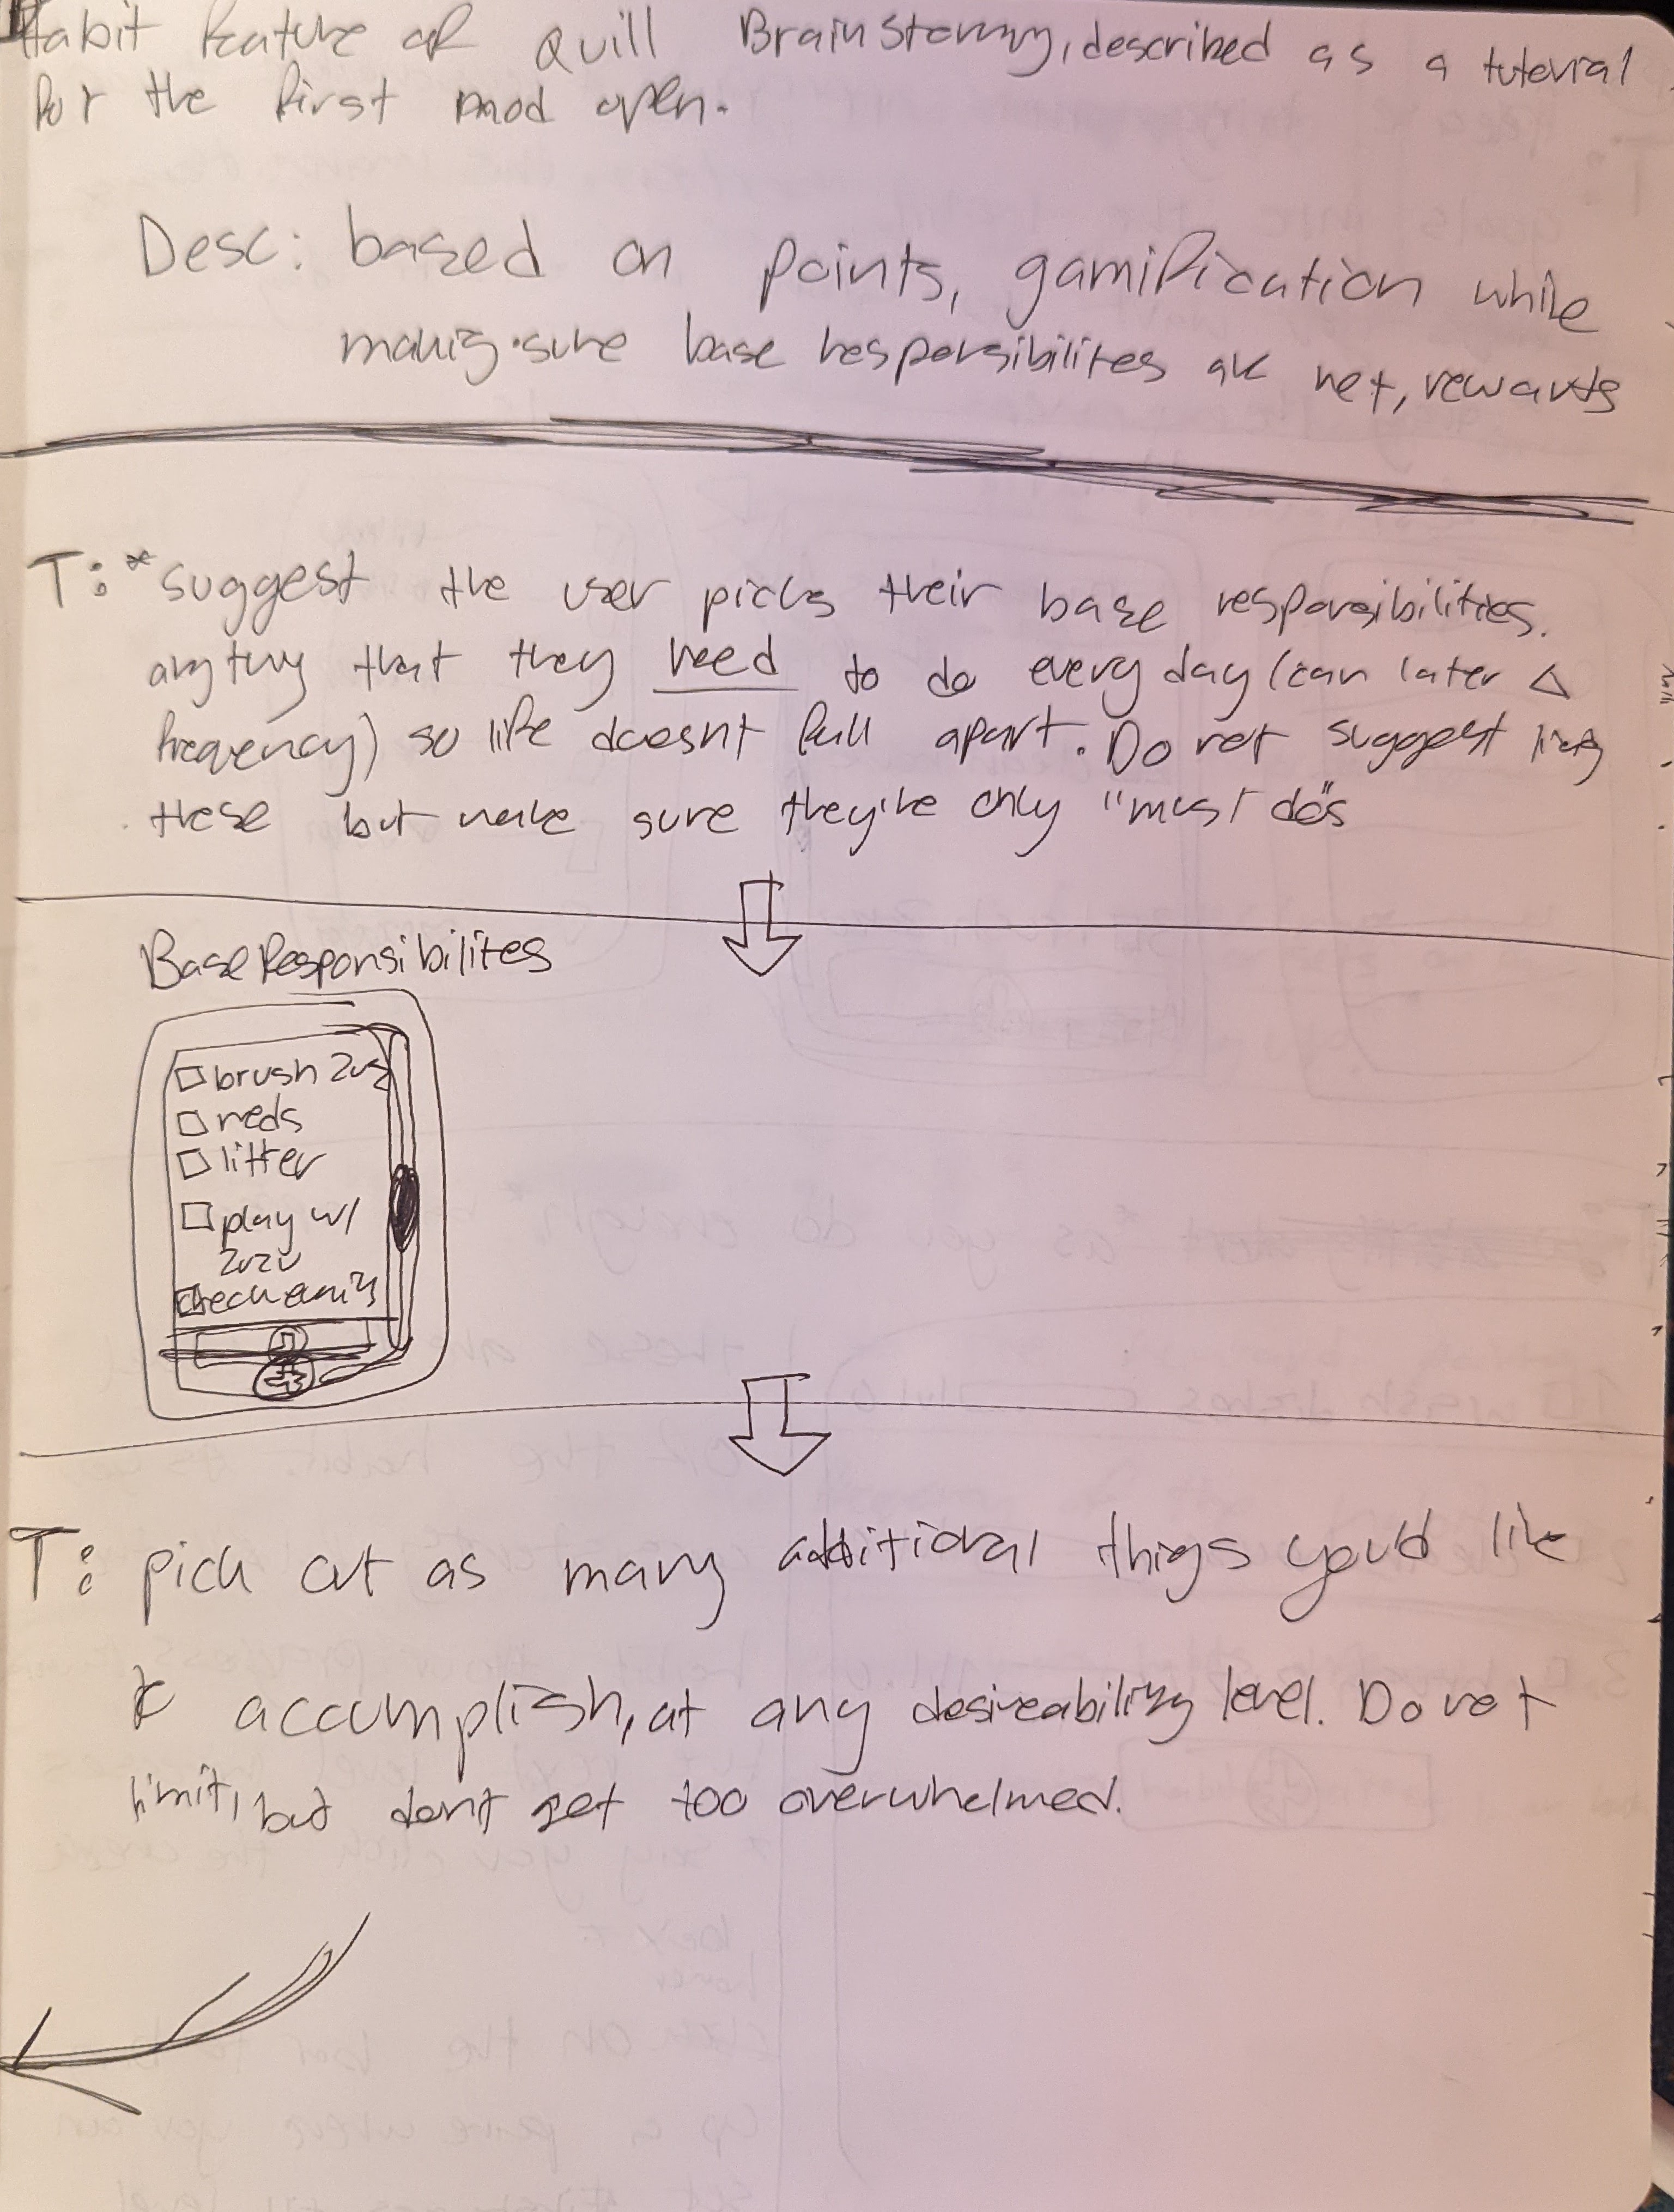 Habit feature of Quill Brainstorming, described as a tutorial
for the first mod open.
Desc: based on points, gamification while
making sure base responsibilites are met, rewards
T: *suggest the user picks their base responsibilities.
anything that they need to do every day (can later Δ
frequency) so life doesnt fall apart. Do not suggest
these but make sure they're only "must do"s
Base Responsibilites
brush
meds
litter
play w/
zuzu
check emails
T: pick out as many additional things you'd like
to accomplish, at any desireability level. Do not
limit, but don't get too overwhelmed.